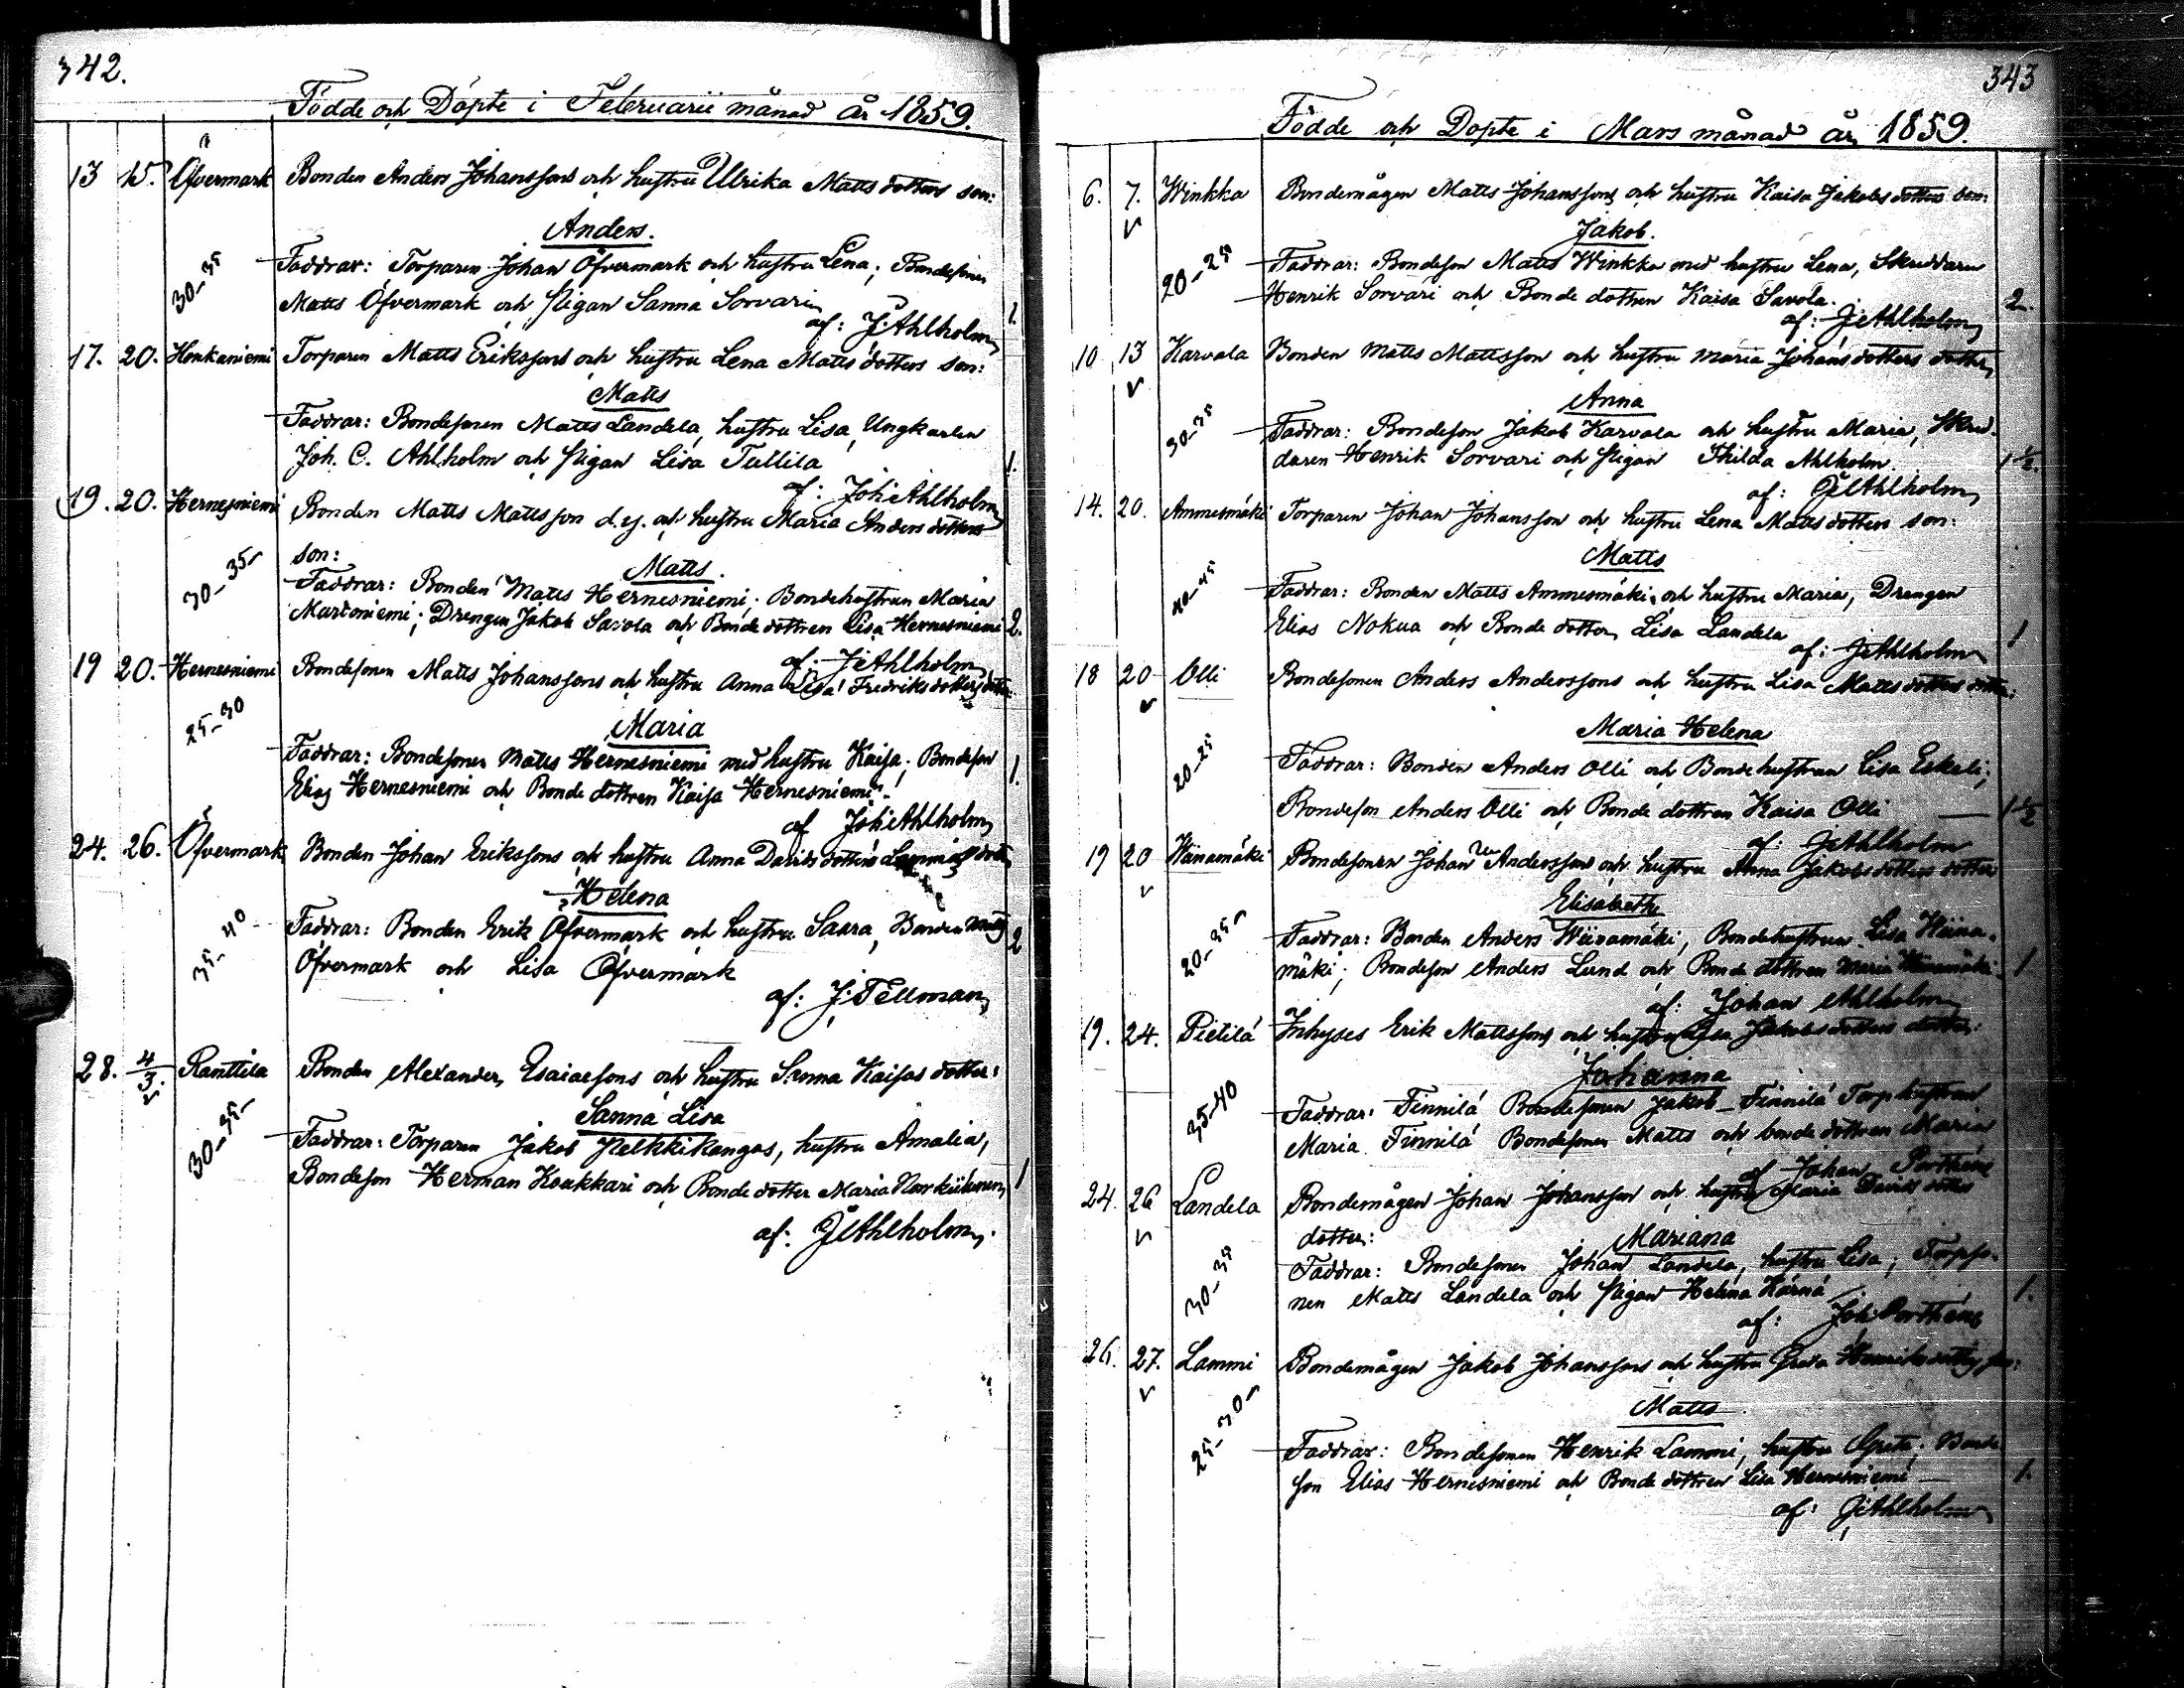 342.
Födde och Döpte i Februarii månad år 1859.
13 15. Öfvermark Bonden Anders Johanssons och hustru Ulrika Matts dotters son:
Anders.
30-35 Faddrar: Torparen Johan Öfvermark och hustru Lena; Bondesonen
Matts Öfvermark och Pigan Sanna Sorvari 1.
af: J. Ahlholm
17. 20. Honkaniemi Torparen Matts Erikssons och hustru Lena Matts dotters son:
Matts
Faddrar: Bondesonen Matts Landela, hustru Lisa, Ungkarlen
Joh. C. Ahlholm och Pigan Lisa Tullila 1.
af: Joh: Ahlholm
19. 20. Hernesniemi Bonden Matts Mattsson d.y. och hustru Maria Anders dotters
son:
Matts.
30-35 Faddrar: Bonden Matts Hernesniemi; Bondehustrun Maria
Martoniemi; Drengen Jakob Savola och Bonde dottren Lisa Hernesniemi 2.
af: J Ahlholm
19 20. Hernesniemi Bondesonen Matts Johanssons och hustru Anna Lisa Fredriks dotters dotter
25-30 Maria
Faddrar: Bondesonen Matts Hernesniemi med hustru Kaisa; Bondeson
Elias Hernesniemi och Bonde dottren Kaisa Hernesniemi 1.
af Joh: Ahlholm
24. 26. Öfvermark Bonden Johan Erikssons och hustru Anna Davids dotters
Helena
35-40 Faddrar: Bonden Erik Öfvermark och hustru Saara, Bonden Matts 2
Öfvermark och Lisa Öfvermark
af: J: Fellman
28. 4/3. Ranttila Bonden Alexander Esaiaesons och hustru Sanna Kaisas dotter:
Sanna Lisa
30-35 Faddrar: Torparen Jakob Pelkkikangas, hustru Amalia,
Bondeson Herman Koukkari och Bonde dotter Maria 1
af: J Ahlholm.
343
Födde och Döpte i Mars månad år 1859.
6. 7. Winkka Bondemågen Matts Johanssons och hustru Kaisa Jakobs dotters son:
Jakob.
20-25 Faddrar: Bondeson Matts Winkka med hustru Lena, Skreddaren
Henrik Sorvari och Bonde dottren Kaisa Savola. 2.
af: J Ahlholm
10 13 Karvala Bonden Matts Mattsson och hustru Maria Johans dotters dotter
Anna
30-35 Faddrar: Bondeson Jakob Karvala och hustru Maria, Skred-
daren Henrik Sorvari och Pigan Thilda Ahlholm. 1 1/2.
af: J Ahlholm
14. 20. Ammesmäki Torparen Johan Johansson och hustru Lena Matts dotters son:
Matts
40-45 Faddrar: Bonden Matts Ammesmäki och hustru Maria, Drengen
Elias Nokua och Bonde dotter Lisa Landela 1
af: J Ahlholm
18 20 Olli Bondesonen Anders Anderssons och hustru Lisa Matts dotters dotter:
Maria Helena
20-25 Faddrar: Bonden Anders Olli och Bondehustrun Lisa Eskeli;
Bondeson Anders Olli och Bonde dottren Kaisa Olli 1 1/2
af: J Ahlholm
19 20 Wiinamäki Bondesonen Johan Anderssons och hustru Anna Jakobs dotters dotter
Elisabeth
20-25 Faddrar: Bonden Anders Wiinamäki, Bondehustrun Lisa Wiina-
mäki; Bondeson Anders Lund och Bonde dottren Maria Wiinamäki 1
af: Johan Ahlholm
19. 24. Pietilä Inhyses Erik Mattssons och hustru Lisa Jakobs dotters dotter:
Johanna
35-40 Faddrar: Finnilä Bondesonen Jakob Finnilä Torphustrun
Maria Finnilä Bondesonen Matts och bonde dottren Maria
af Johan Porthene
24. 26 Landela Bondemågen Johan Johansson och hustru Maria Davids dotters
dotter:
Mariana
30-35 Faddrar: Bondesonen Johan Landela, hustru Lisa; Torpso-
nen Matts Landela och Pigan Helena Kärnä 1.
af: Joh: Porthene
26. 27. Lammi Bondemågen Jakob Johanssons och hustru Greta Henriks dotters son:
Matts
25-30 Faddrar: Bondesonen Henrik Lammi, hustru Greta; Bonde
son Elias Hernesniemi och Bonde dottren Lisa Hernesniemi 1.
af: J Ahlholm